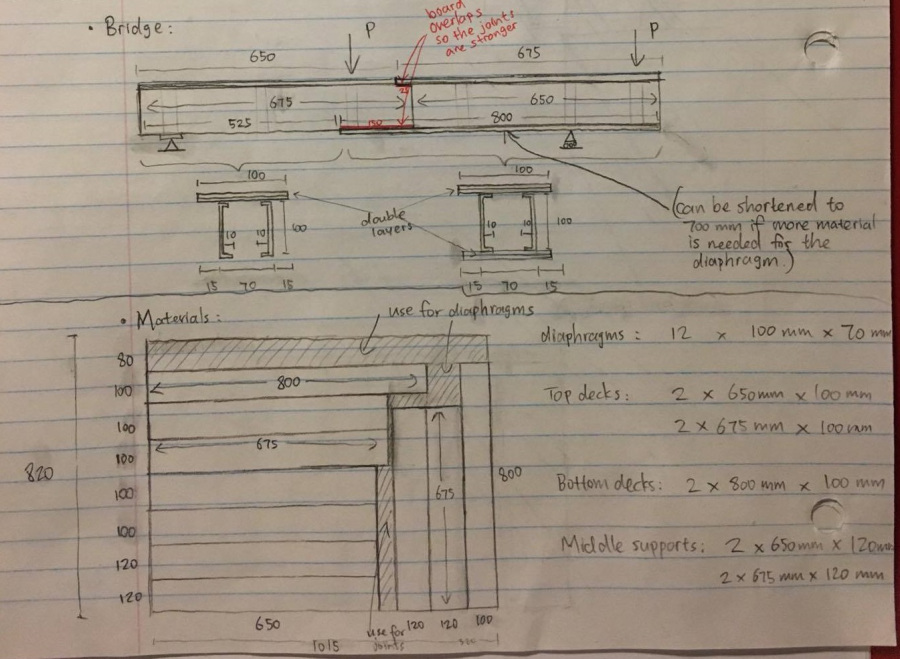 • Bridge:
board
overlaps
so the joints
are stronger
P
P
650
675
25
675
650
525
150
800
100
100
double
layers
10
10
100
10
10
100
15 70 15
15 70 15
(can be shortened to
700 mm if more material
is needed for the
diaphragm.)
• Materials:
use for diaphragms
80
100
100
100
100
100
120
120
820
800
675
675
800
650
use for
joints
120
120
100
1015
diaphragms: 12 x 100 mm x 70 mm
Top decks: 2 x 650mm x 100 mm
2 x 675 mm x 100 mm
Bottom decks: 2 x 800 mm x 100 mm
Middle supports: 2 x 650mm x 120mm
2 x 675 mm x 120 mm